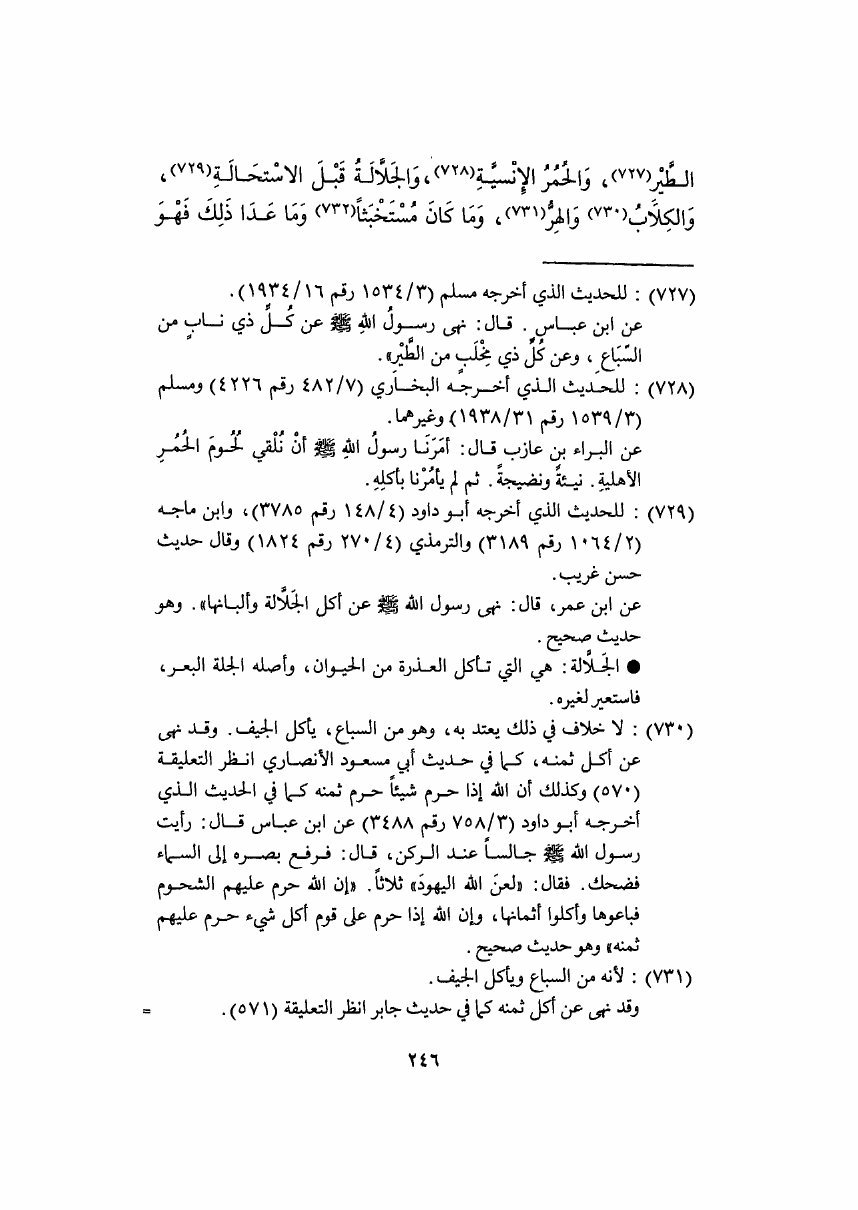 الطَّيْرِ(٧٢٧)، وَالْحُمُرُ الإِنْسِيَّةِ(٧٢٨)، وَالْجَلَّالَةُ قَبْلَ الاسْتِحَالَةِ(٧٢٩)،
وَالكِلَابُ(٧٣٠) وَالهِرُّ(٧٣١)، وَمَا كَانَ مُسْتَخْبَثاً(٧٣٢) وَمَا عَدَا ذَلِكَ فَهْوَ
(٧٢٧) : للحديث الذي أخرجه مسلم (١٥٣٤/٣ رقم ١٩٣٤/١٦).
عن ابن عباسٍ. قال: نهى رسولُ اللهِ ﷺ عن كُلِّ ذي نابٍ من
السِّبَاعِ، وعن كُلِّ ذي مِخْلَبٍ من الطَّيْرِ».
(٧٢٨) : للحديث الذي أخرجه البخاري (٤٨٢/٧ رقم ٤٢٢٦) ومسلم
(١٥٣٩/٣ رقم ١٩٣٨/٣١) وغيرهما.
عن البراء بن عازب قال: أَمَرَنَا رسولُ اللهِ ﷺ أنْ نُلْقي لُحُومَ الحُمُرِ
الأهليةِ. نيئةً ونضيجةً. ثم لم يأمُرْنا بأكلِهِ.
(٧٢٩) : للحديث الذي أخرجه أبو داود (١٤٨/٤ رقم ٣٧٨٥)، وابن ماجه
(١٠٦٤/٢ رقم ٣١٨٩) والترمذي (٢٧٠/٤ رقم ١٨٢٤) وقال حديث
حسن غريب.
عن ابن عمر، قال: نهى رسول الله ﷺ عن أكل الجَلَّالة وألبانها». وهو
حديث صحيح.
● الجَلَّالة: هي التي تأكل العذرة من الحيوان، وأصله الجلة البعر،
فاستعير لغيره.
(٧٣٠) : لا خلاف في ذلك يعتد به، وهو من السباع، يأكل الجيف. وقد نهى
عن أكل ثمنه، كما في حديث أبي مسعود الأنصاري انظر التعليقة
(٥٧٠) وكذلك أن الله إذا حرم شيئاً حرم ثمنه كما في الحديث الذي
أخرجه أبو داود (٧٥٨/٣ رقم ٣٤٨٨) عن ابن عباس قال: رأيت
رسول الله ﷺ جالساً عند الركن، قال: فرفع بصره إلى السماء
فضحك. فقال: «لعنَ الله اليهودَ» ثلاثاً. «إن الله حرم عليهم الشحوم
فباعوها وأكلوا أثمانها، وإن الله إذا حرم على قوم أكل شيء حرم عليهم
ثمنه» وهو حديث صحيح.
(٧٣١) : لأنه من السباع ويأكل الجيف.
وقد نهى عن أكل ثمنه كما في حديث جابر انظر التعليقة (٥٧١). =
٢٤٦